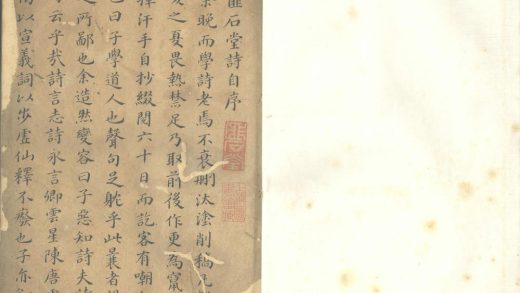 匪石堂詩自序
余晚而學詩老馬不衰刪汰塗削稿凡
之夏畏熱禁足乃取前後作更為竄
揮汗手自抄綴閱六十日而訖客有嘲
曰子學道人也聲句足躭乎此曩者
之所鄙也余造然變容曰子惡知詩夫
云乎哉詩言志詩永言卿雲星陳唐
以宣義詞以步虛仙釋不廢也子亦